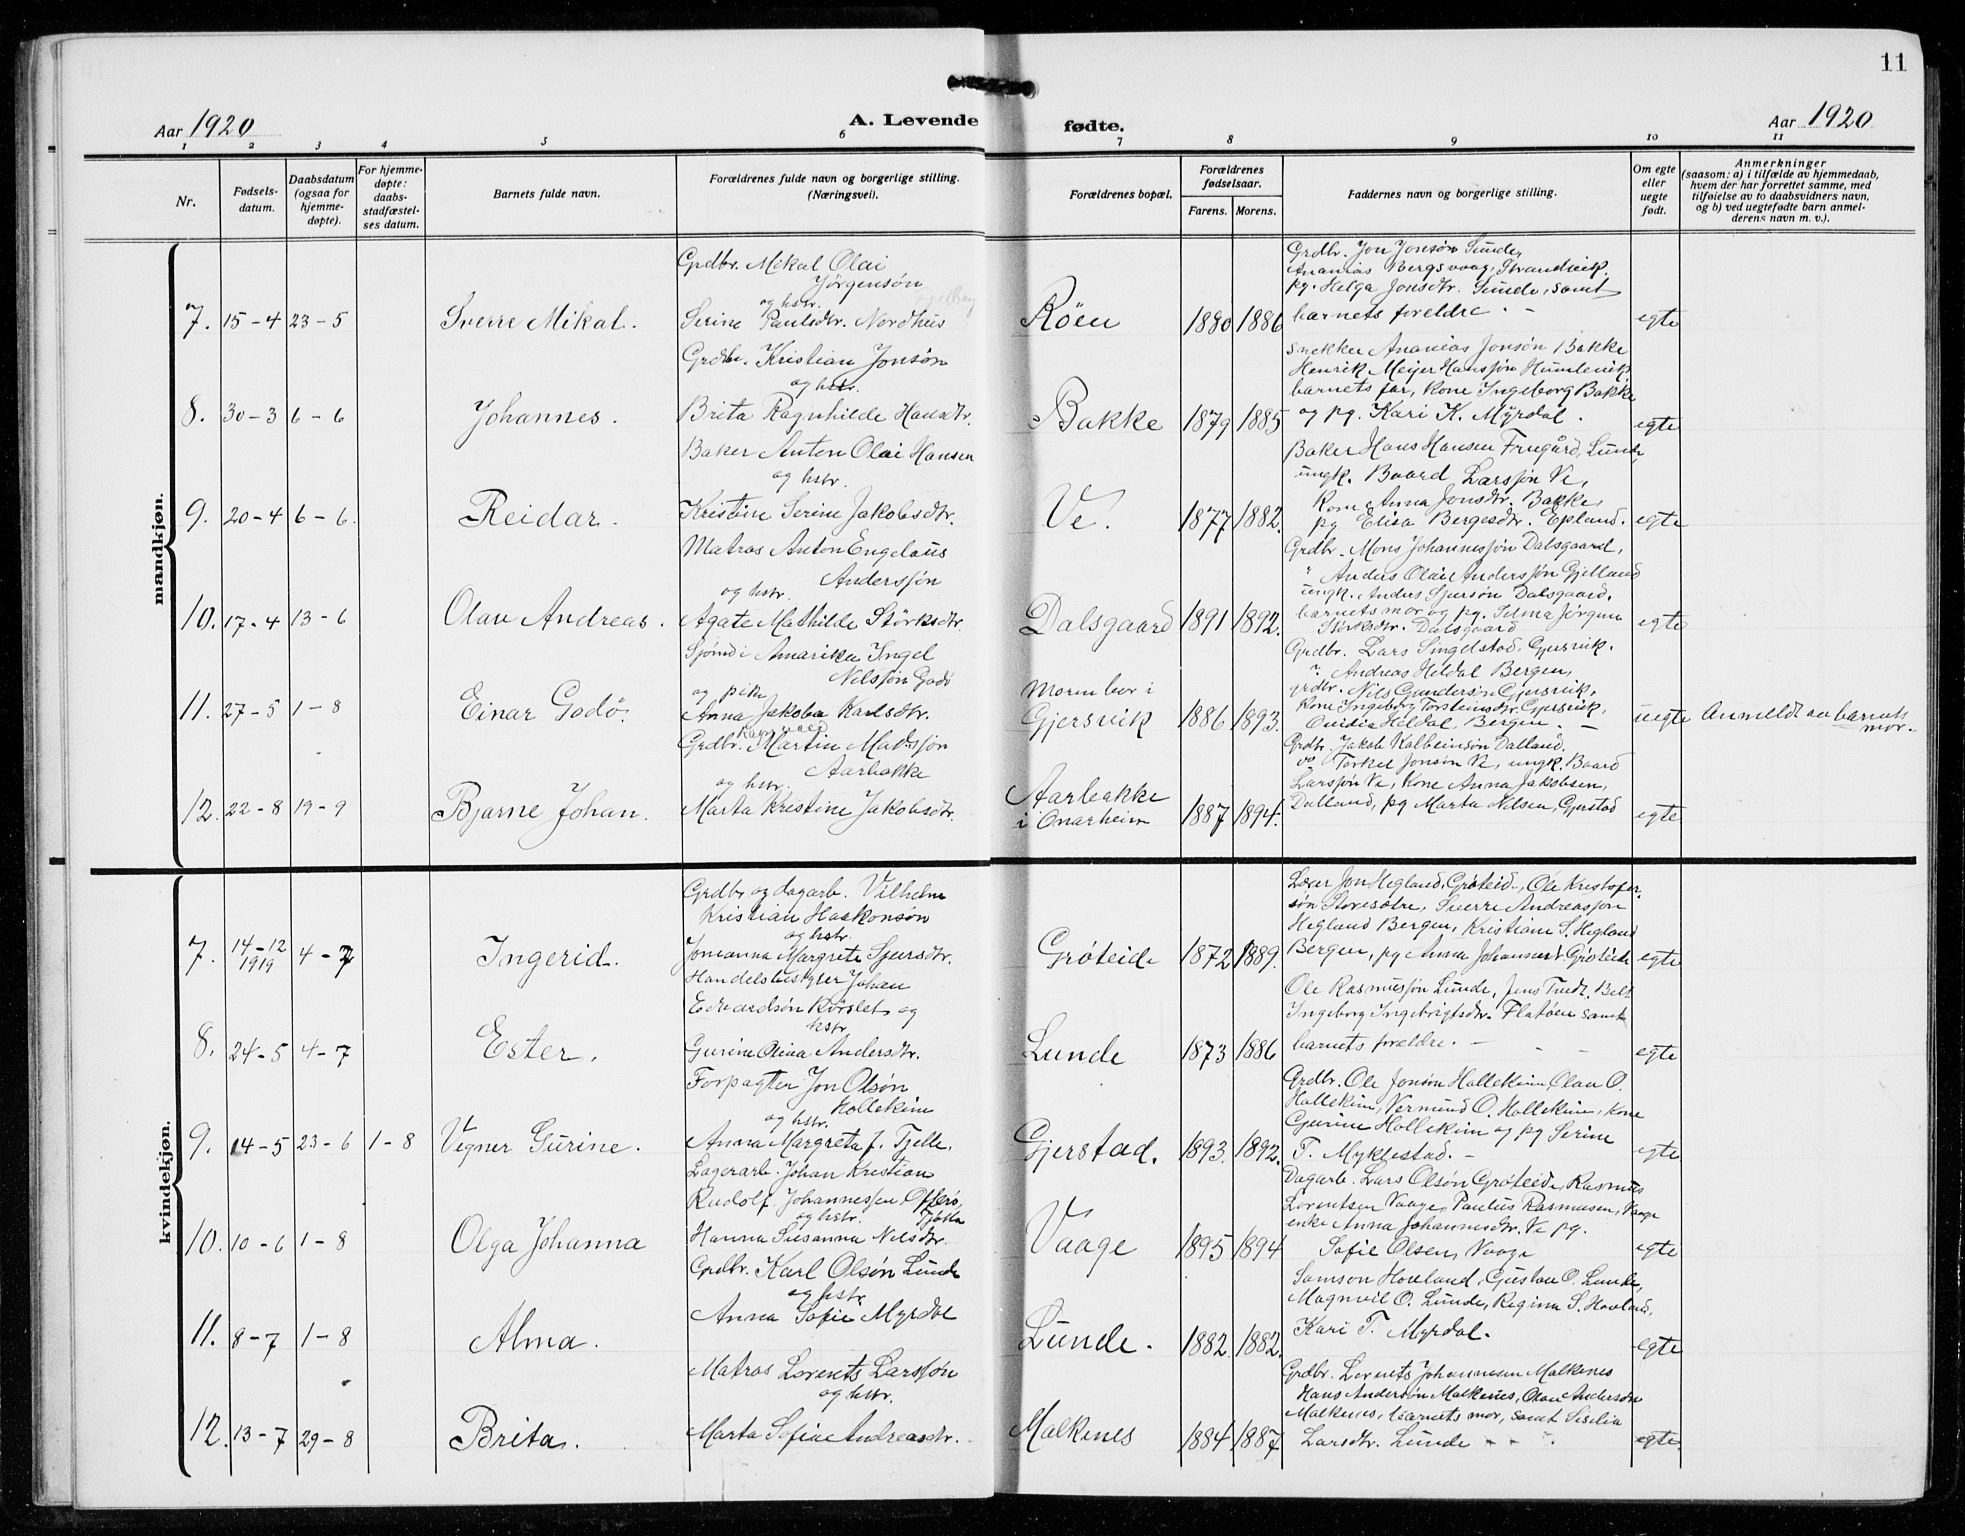 11
Aar 1920
A. Levende fødte.
Aar 1920
1 2 3 4 5 6 7 8 9 10 11
Nr.
Fødsels-
datum.
Daabsdatum
(ogsaa for
hjemme-
døpte).
For hjemme-
døpte:
daabs-
stadfæstel-
ses datum.
Barnets fulde navn.
Forældrenes fulde navn og borgerlige stilling.
(Næringsvei).
Forældrenes bopæl.
Forældrenes
fødselsaar.
Farens. Morens.
Faddernes navn og borgerlige stilling.
Om egte
eller
uegte
født.
Anmerkninger
(saasom: a) i tilfælde av hjemmedaab,
hvem der har forrettet samme, med
tilføielse av to daabsvidners navn,
og b) ved uegtefødte barn anmel-
derens navn m. v.).
mandkjøn.
7. 15-4 23-5 Sverre Mikal.
Grdbr. Mikal Olai
Jørgensøn
og hstr.
Serine Paulsdtr. Nordhus
Röen 1880 1886
Grdbr. Jon Jonsøn Sunde,
Ananias Bergsvaag, Strandvik,
pg. Helga Jonsdtr. Sunde, samt
barnets foreldre. -
egte
8. 30-3 6-6 Johannes.
Grdbr. Kristian Jonsøn
og hstr.
Brita Ragnhilde Hansdtr.
Bakke 1879 1885
Snekker Ananias Jonsøn Bakke
Henrik Meijer Hansjøn Humlevik,
barnets far, kone Ingeborg Bakke
og pg. Kari K. Myrdal.
egte
9. 20-4 6-6. Reidar.
Baker Anton Olai Hansen
og hstr.
Kristine Serine Jakobsdtr.
Ve. 1877 1882.
Baker Hans Hansen Frugård, Lunde,
ungk. Baard Larsjøn Ve,
Kone Anna Jonsdtr. Bakke,
pg Elisa Bergesdtr. Epland.
egte
10. 17-4 13-6 Olav Andreas.
Matros Anton Engelaus
Andersjøn
og hstr.
Agate Mathilde Störksdtr.
Dalsgaard 1891 1892.
Grdbr. Mons Johannesjøn Dalsgaard,
" Anders Olai Andersjøn Gjelland
ungk. Anders Sjursøn Dalsgaard,
barnets mor og pg. Selma Jörgine
Störksdtr. Dalsgaard
egte
11. 27-5 1-8 Einar Godö.
Sjømd i Amerika Ingel
Nilsjøn Godö
og pike
Anna Jakoba Karlsdtr.
Moren bor i
Gjersvik 1886 1893.
Grdbr. Lars Singelstad, Gjersvik.
" Andreas Heldal Bergen,
grdbr. Nils Gundersøn Gjersvik,
Kone Ingeborg Torsteinsdtr. Gjersvik,
Ovidia Heldal, Bergen. -
uegte Anmeldt av barnets
mor.
12. 22-8 19-9 Bjarne Johan.
Grdbr. Martin Madsjøn
Aarbakke
og hstr.
Marta Kristine Jakobsdtr.
Aarbakke
i Onarheim 1887 1894.
Grdbr. Jakob Kolbeinsøn Dalland.
Torkel Jonsøn Ve, ungk. Baard
Larsjøn Ve, Kone Anna Jakobsen,
Dalland, pg Marta Nilsen, Gjerstad
egte
kvindekjøn.
7. 14-12
1919 4-7 Ingerid.
Grdbr og dagarb. Vilhelm
Kristian Haakonsøn
og hstr.
Johanna Margrete Sjursdtr.
Gröteide 1872 1889.
Lærer Jon Hegland, Gröteid, Ole Kristofer-
søn Storesætre, Sverre Andreasjøn
Hegland Bergen, Kristiane S. Hegland
Bergen, pg Anna Johannesdt Gröteide
egte
8. 24-5 4-7 Ester.
Handelsbestyrer Johan
Edvardsøn Rörslet og
hstr
Gurine Olina Andersdtr.
Lunde 1873 1886
Ole Rasmusjøn Lunde, Jens Tvedt, Belt
Ingeborg Ingebrigtsdtr. Flatöen samt
barnets foreldre. -
egte
9. 14-5 23-6 1-8 Vegner Gurine.
Forpagter Jon Olsøn
Hollekim
og hstr.
Anna Margreta f. Tjelle.
Gjerstad. 1893. 1892.
Grdbr. Ole Jonsøn Hollekim, Olav O.
Hollekim, Vermund O. Hollekim, kone
Gurine Hollekim og pg Serine
T. Myklestad. -
egte
10. 10-6 1-8 Olga Johanna
Lagerarb. Johan Kristian
Rudolf Johannessen Offerö,
og hstr. Tjötta
Hanna Susanna Nilsdtr.
Vaage 1895 1894
Dagarb. Lars Olsøn Gröteide, Rasmus
Lorentsen Vaage, Paulus Rasmusen, Vaage
enke Anna Johannesdtr. Ve pg.
Sofie Olsen, Vaage
egte
11. 8-7 1-8 Alma.
Grdbr. Karl Olsøn Lunde
og hstr
Anna Sofie Myrdal
Lunde. 1882. 1882.
Samson Hovland, Gustav O. Lunde,
Magnvil O. Lunde, Regina S. Hovland,
Kari T. Myrdal.
egte
12. 13-7 29-8 Brita.
Matros Lorents Larsjøn
og hstr.
Marta Sofie Andreasdtr.
Malkenes 1884 1887
Grdbr. Lorents Johannesen Malkenes
Hans Andersøn Malkenes, Olav Andersøn
Malkenes, barnets mor, samt Sisilia
Larsdtr. Lunde - -
egte.